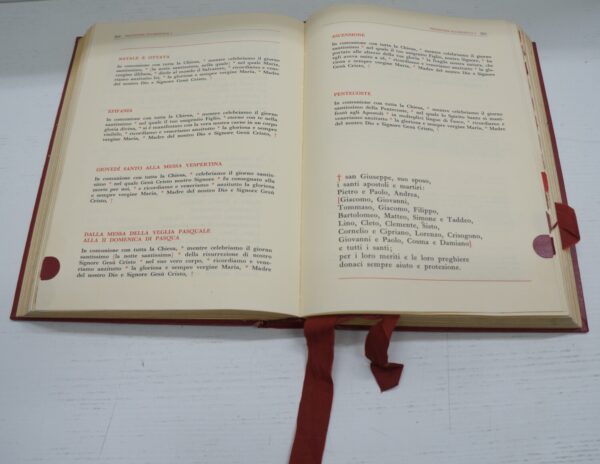 PREGHIERA EUCARISTICA I
NATALE E OTTAVA
In comunione con tutta la Chiesa, * mentre celebriamo il giorno
santissimo * (la notte santissima) nella quale * Maria,
vergine illibata, * diede al mondo il Salvatore, * ricordiamo e
veneriamo anzitutto lei, * la gloriosa e sempre vergine Maria, * Madre
del nostro Dio e Signore Gesù Cristo, †
EPIFANIA
In comunione con tutta la Chiesa, * mentre celebriamo il giorno
santissimo * nel quale il tuo unigenito Figlio, * eterno con te nella
gloria divina, * si è manifestato con la vera nostra carne in un corpo
visibile, * ricordiamo e veneriamo anzitutto * la gloriosa e sempre
vergine Maria, * Madre del nostro Dio e Signore Gesù Cristo, †
GIOVEDÌ SANTO ALLA MESSA VESPERTINA
In comunione con tutta la Chiesa, * celebriamo il giorno santis-
simo * nel quale Gesù Cristo nostro Signore * fu consegnato alla
morte per noi, * e ricordiamo e veneriamo anzitutto * la gloriosa
e sempre vergine Maria, * Madre del nostro Dio e Signore Gesù
Cristo, †
DALLA MESSA DELLA VEGLIA PASQUALE
ALLA II DOMENICA DI PASQUA
In comunione con tutta la Chiesa, * mentre celebriamo il giorno
santissimo [la notte santissima] * della risurrezione di nostro
Signore Gesù Cristo * nel suo vero corpo, * ricordiamo e vene-
riamo anzitutto * la gloriosa e sempre vergine Maria, * Madre
del nostro Dio e Signore Gesù Cristo, †
PREGHIERA EUCARISTICA I
ASCENSIONE
In comunione con tutta la Chiesa, * mentre celebriamo il giorno
santissimo * nel quale il tuo unigenito Figlio,
e sempre vergine Maria, * Madre del nostro Dio e Signore Gesù
Cristo, †
PENTECOSTE
In comunione con tutta la Chiesa, * mentre celebriamo il giorno
santissimo della Pentecoste, * nel quale lo Spirito Santo si mani-
festò agli Apostoli * in molteplici lingue di fuoco, * ricordiamo e
veneriamo anzitutto * la gloriosa e sempre vergine Maria, * Madre
del nostro Dio e Signore Gesù Cristo, †
† san Giuseppe, suo sposo,
i santi apostoli e martiri:
Pietro e Paolo, Andrea,
[Giacomo, Giovanni,
Tommaso, Giacomo, Filippo,
Bartolomeo, Matteo, Simone e Taddeo,
Lino, Cleto, Clemente, Sisto,
Cornelio e Cipriano, Lorenzo, Crisogono,
Giovanni e Paolo, Cosma e Damiano]
e tutti i santi;
per i loro meriti e le loro preghiere
donaci sempre aiuto e protezione.